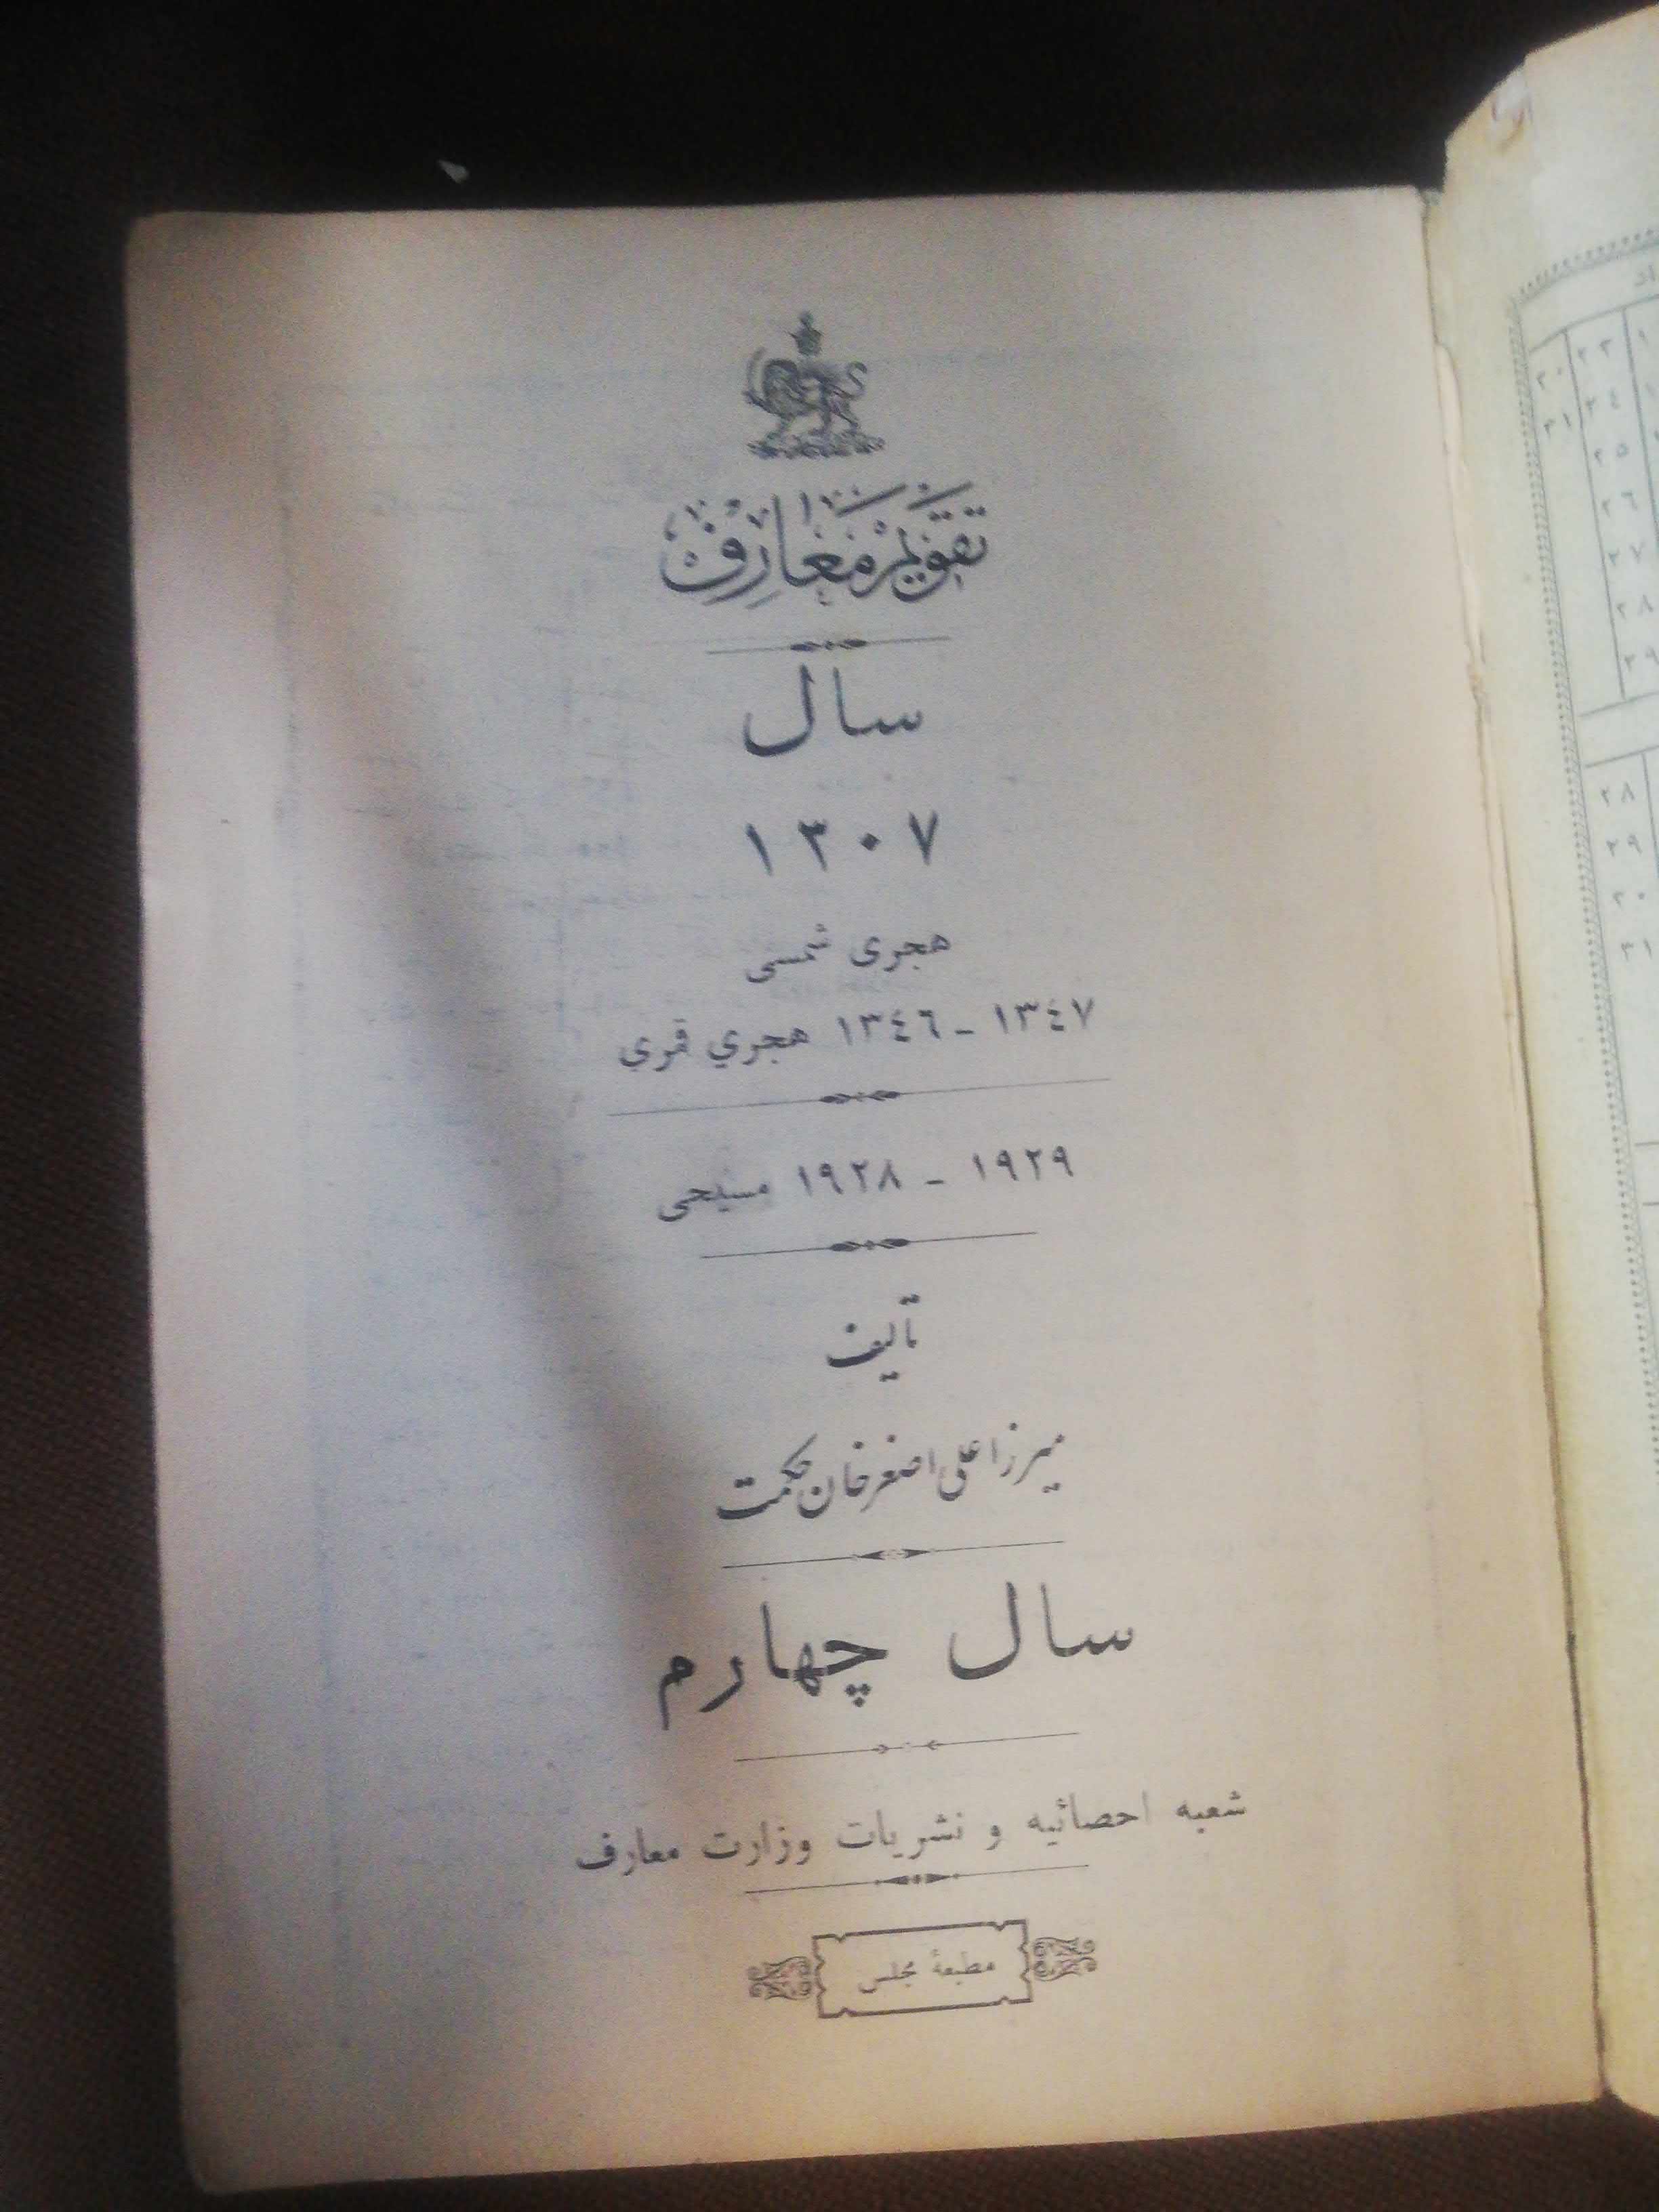 تقویم معارف
سال
۱۳۰۷
هجری شمسی
۱۳٤۷ - ۱۳٤٦ هجري قمري
۱۹۲۹ - ۱۹۲۸ مسیحی
تالیف
میرزا علی اصغر خان حکمت
سال چهارم
شعبه احصائیه و نشریات وزارت معارف
مطبعهٔ مجلس
۲۸
۲۹